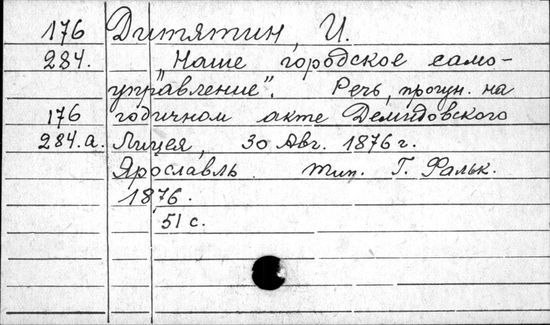 176 Дитятин, И.
284. "Наше городское само-
управление". Речь, прочун. на
176 годичном акте Демидовского
284.а. Лицея, 30 Авг. 1876 г.
Ярославль. тип. Г. Фальк.
1876.
51 с.